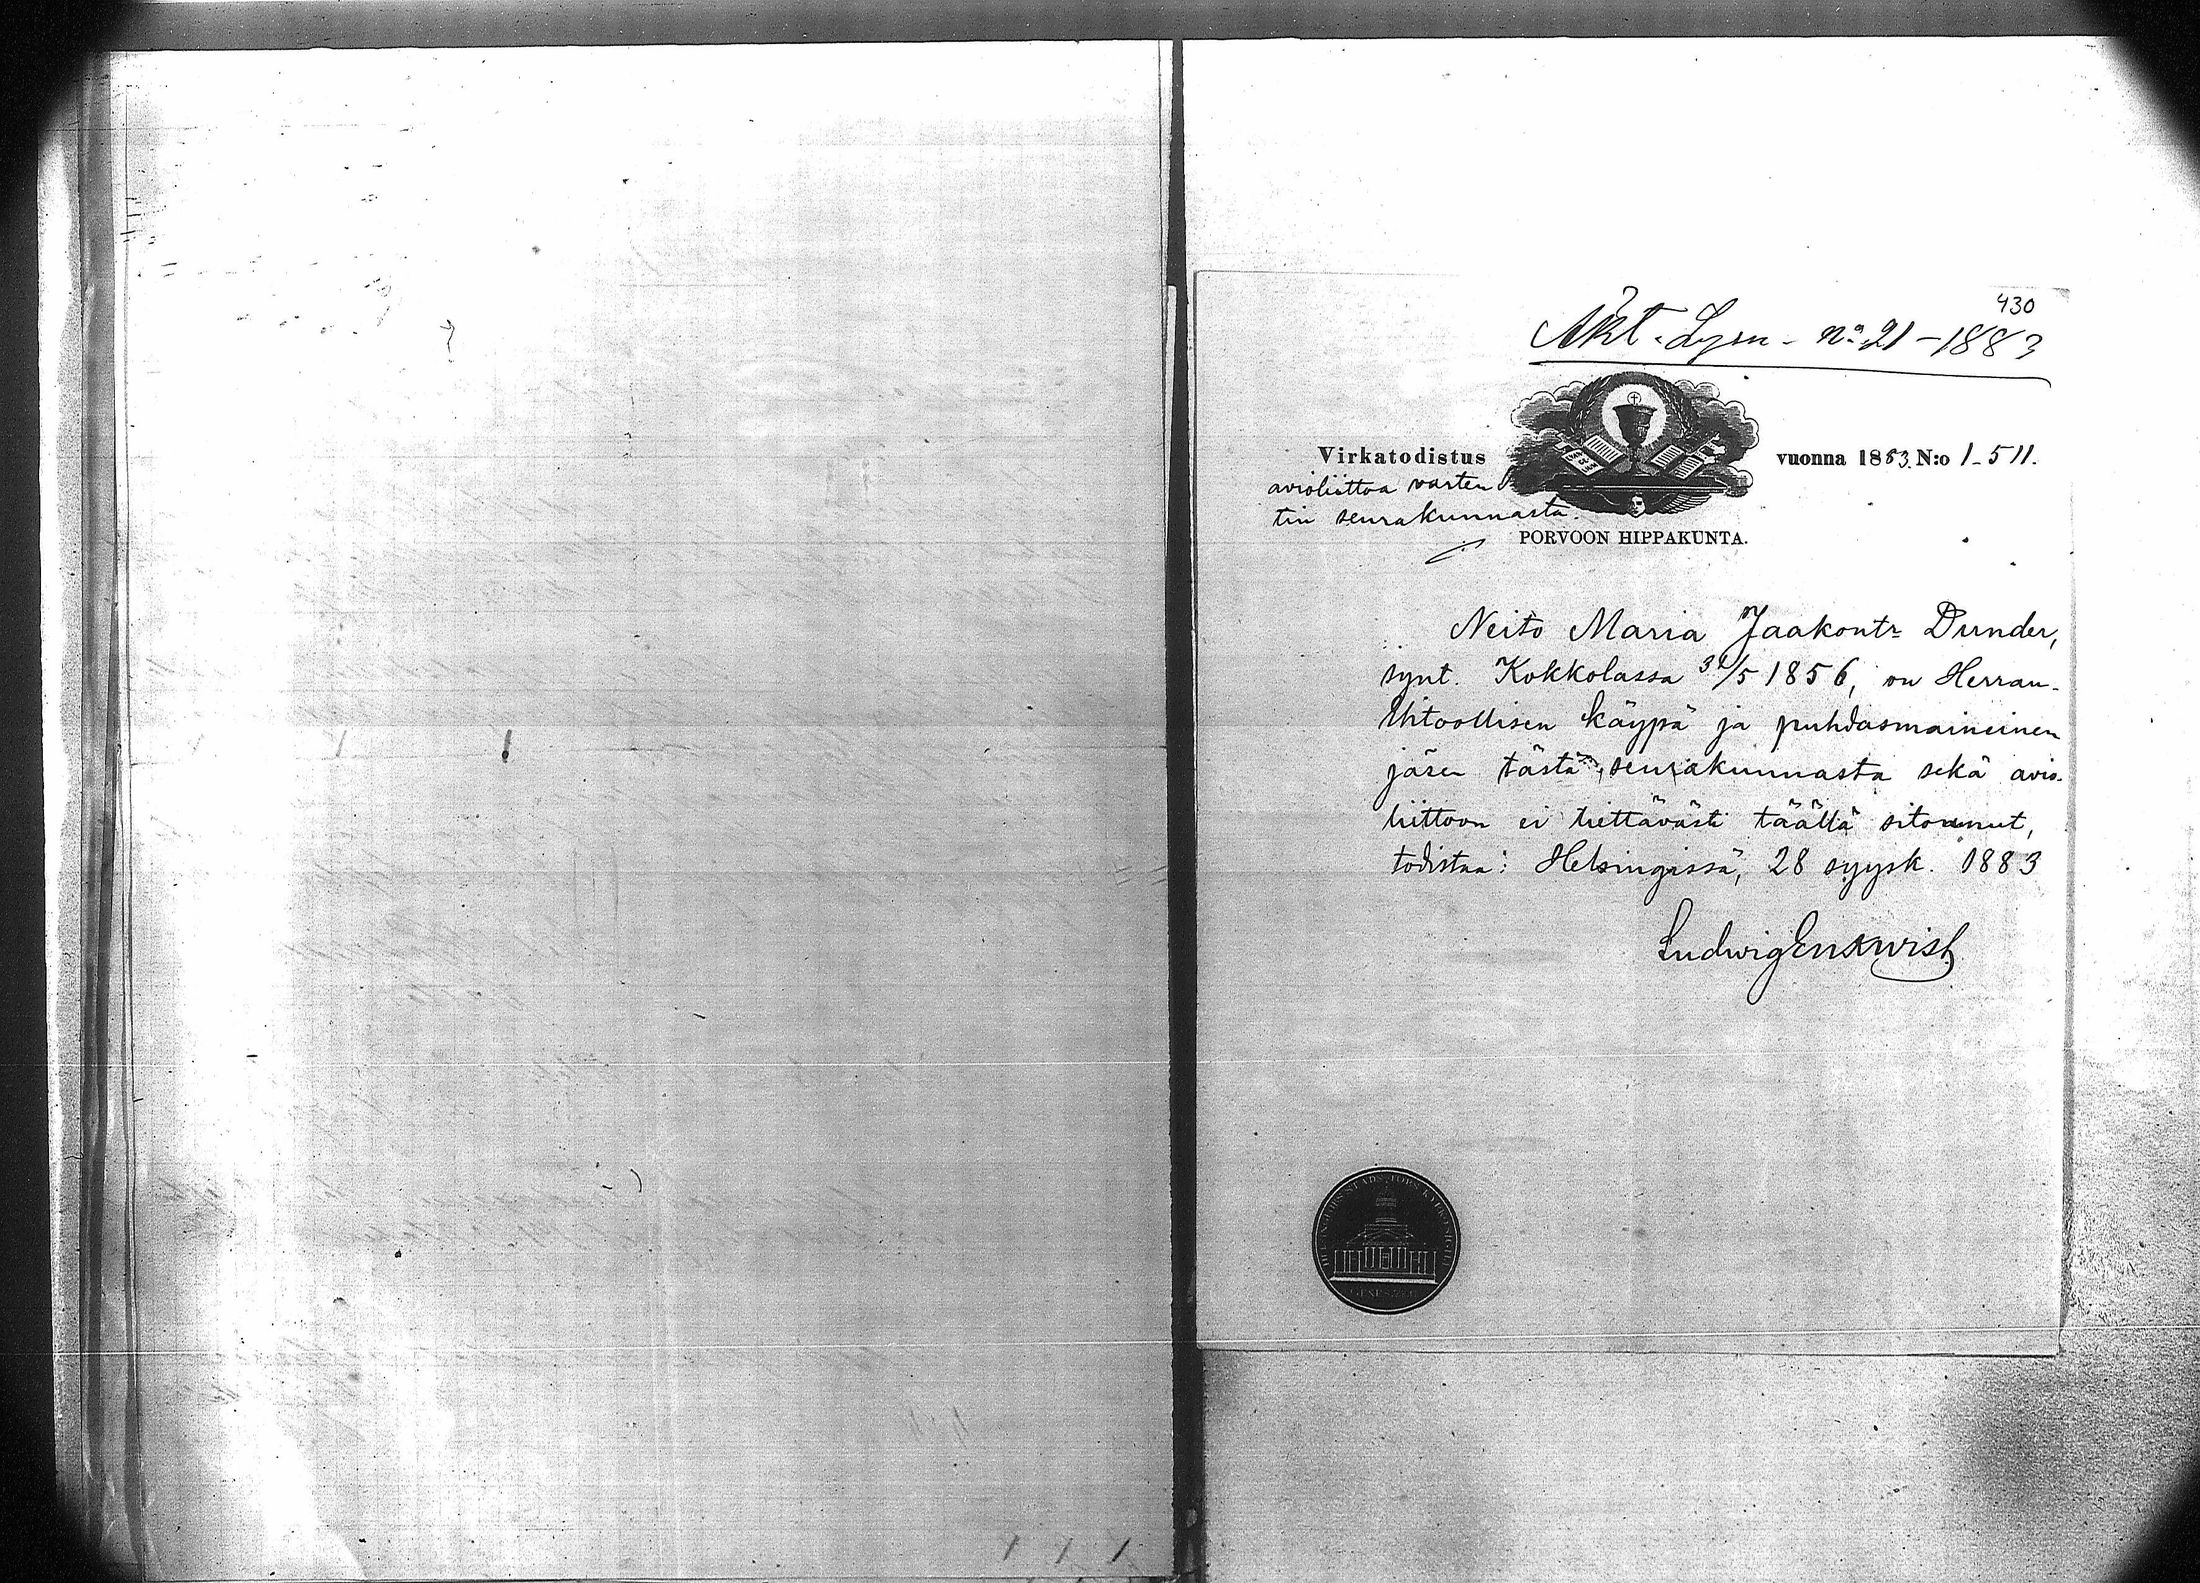 430
Äkt. Lysn. no 21 - 1883
Virkatodistus vuonna 1883. N:o 1-511.
avioliittoa varten
tin seurakunnasta.
PORVOON HIPPAKUNTA.
Neito Maria Jaakontr Dunder,
synt. Kokkolassa 31/5 1856, on Herran-
Ehtoollisen käypä ja puhdasmaineinen
jäsen tästä seurakunnasta sekä avio-
liittoon ei tiettävästi täällä sitounut,
todistaa: Helsingissä, 28 syysk. 1883
Ludwig Enqvist.